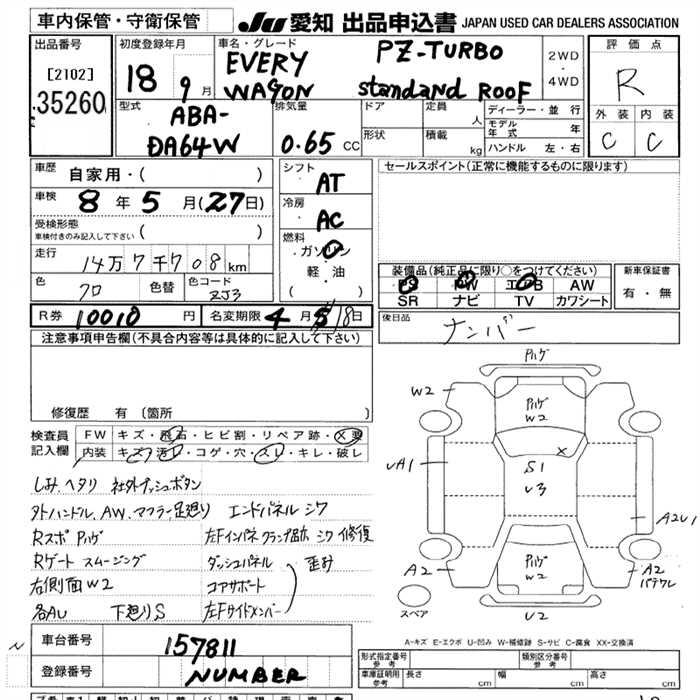 車内保管・守衛保管 JU 愛知 出品申込書 JAPAN USED CAR DEALERS ASSOCIATION
出品番号
[2102]
35260
初度登録年月
18 9 月
車名・グレード
EVERY WAGON
PZ-TURBO
standand ROOF
2WD
・
4WD
評価点
R
外装 内装
C C
型式
ABA-
DA64W
排気量
0.65 CC
ドア
形状
定員 人
積載 kg
ディーラー・並行
モデル年式 年
ハンドル 左・右
車歴 自家用・( )
車検 8 年 5 月(27日)
受検形態
車検付きのみ記入して下さい ( )
走行 14万7千708km
色 クロ 色替 色コード ZJ3
シフト AT
冷房 AC
燃料
ガソリン
軽・油
( )
セールスポイント(正常に機能するものに限ります)
装備品(純正品に限り○をつけてください)
PS PW エアB AW
SR ナビ TV カワシート
新車保証書
有・無
R券 10010 円 名変期限 4 月 5 18日
後日品 ナンバー
注意事項申告欄(不具合内容等は具体的に記入して下さい)
修復歴 有 〔箇所 〕
検査員
記入欄
FW キズ・飛石・ヒビ割・リペア跡・X要
内装 キズ・汚レ・コゲ・穴・スレ・キレ・破レ
しみ、ヘタリ 社外プッシュボタン
外ハンドル、AW、マフラー、足廻り エンドパネル シワ
Rスポ Pハゲ 左Fインパネ クランプ跡 シワ 修復
Rゲート スムージング ダッシュパネル 歪み
右側面W2 コアサポート
各AU 下廻りS 左Fサイドメンバー
Pハゲ
W2
Pハゲ
W2
X
UA1
S1
U3
A2U1
Pハゲ
W2
A2
A2
バテワレ
スペア
U2
A-キズ E-エクボ U-凹み W-補修跡 S-サビ C-腐食 XX-交換済
車台番号 157811
登録番号 NUMBER
形式指定番号
参考
類別区分番号
参考
車庫証明用
参考
長さ cm 幅 cm 高さ cm